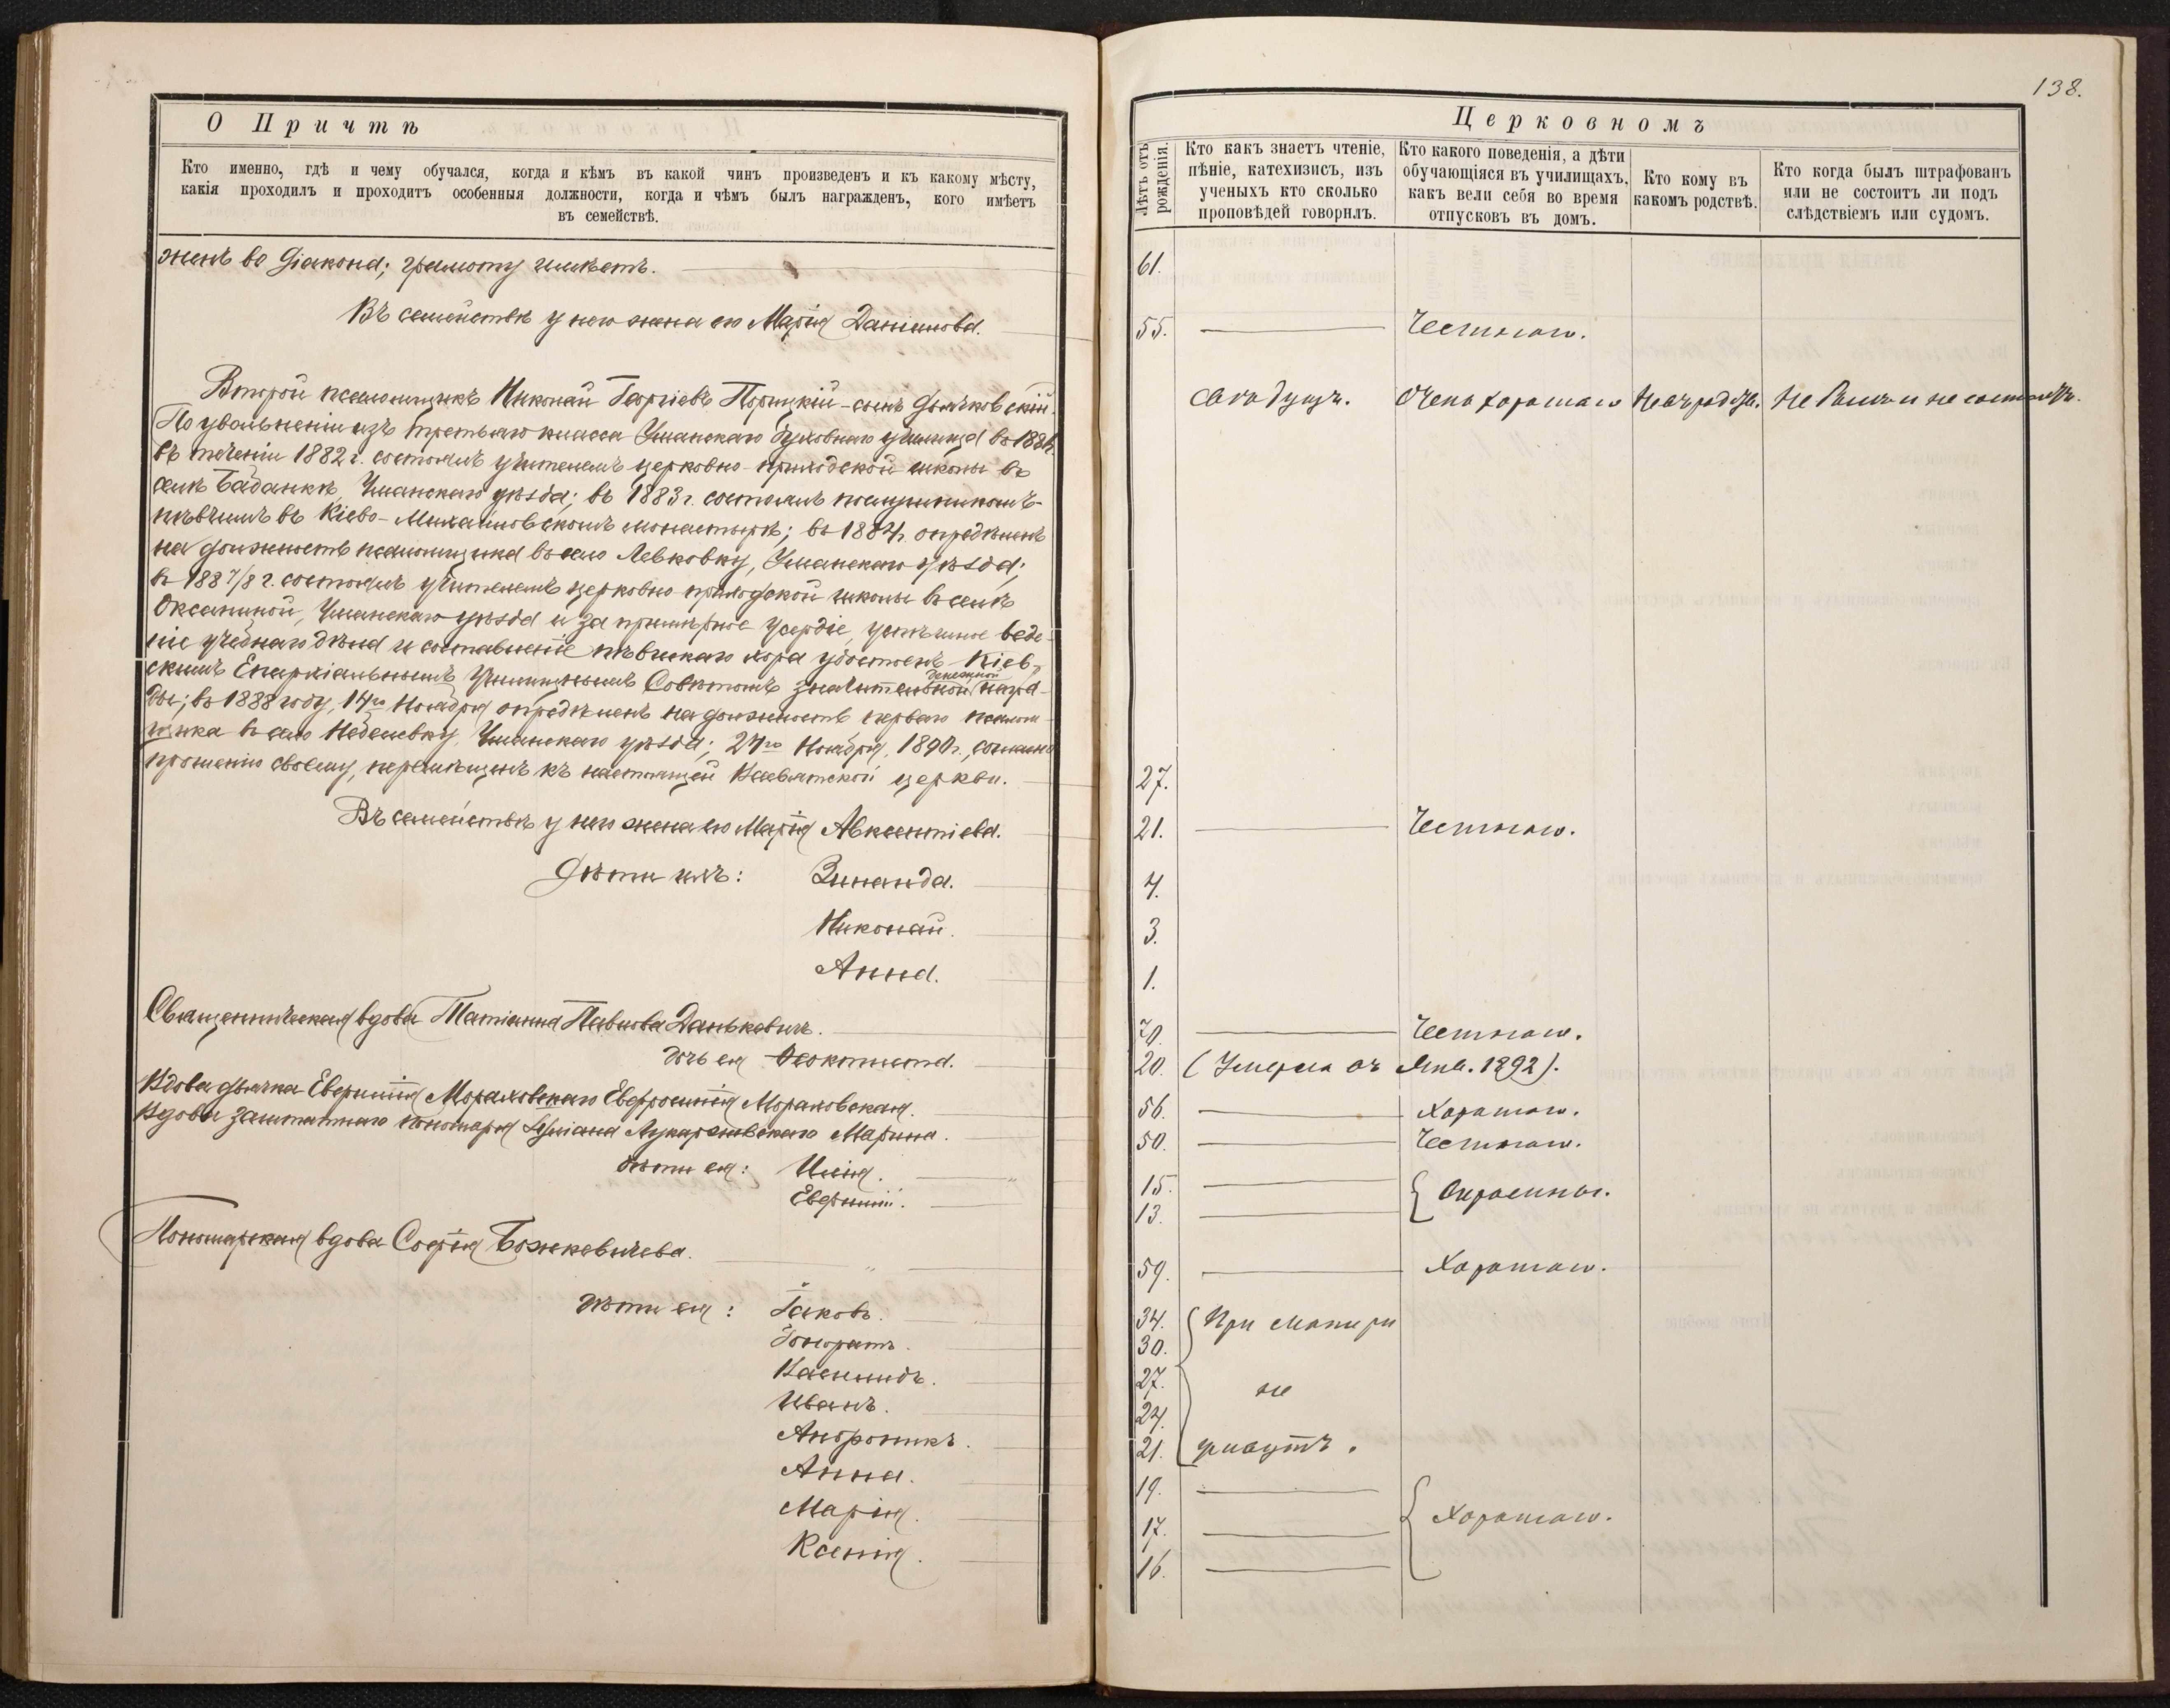 О Причтѣ
Кто именно, гдѣ и чему обучался, когда и кѣмъ въ какой чинъ произведенъ и къ какому мѣсту,
какія проходилъ и проходитъ особенныя должности, когда и чѣмъ былъ награжденъ, кого имѣетъ
въ семействѣ.
женъ во діакона; грамоту имѣетъ.
Въ семействѣ у него жена его Марія Даніилова.
Второй псаломщикъ Николай Георгіевъ Порицкій - сынъ дьячковскій.
По увольненіи изъ третьяго класса Уманскаго духовнаго училища въ
въ теченіи 1882 г. состоялъ учителемъ церковно-приходской школы въ
селѣ Бабанкѣ, Уманскаго уѣзда; въ 1883 г. состоялъ послушникомъ-
пѣвчимъ въ Кіево-Михайловскомъ монастырѣ; въ 1884 г. опредѣленъ
на должность псаломщика въ село Левковку, Уманскаго уѣзда;
въ 1887/8 г. состоялъ учителемъ церковно приходской школы въ селѣ
Оксаниной, Уманскаго уѣзда и за примѣрное усердіе, успѣшное веде-
ніе учебнаго дѣла и составленіе пѣвческаго хора удостоенъ Кіев-
скимъ Епархіальнымъ Училищнымъ Совѣтомъ значительной денежной награ-
ды; въ 1888 году, 14го Ноября опредѣленъ на должность перваго псалом-
щика въ село Небелевку, Уманскаго уѣзда; 24го Ноября, 1890 г., согласно
прошенію своему, перемѣщенъ къ настоящей церкви.
Въ семействѣ у него жена его Марія Авксентіева.
Дѣти ихъ: Зинаида.
Николай.
Анна.
Священническая вдова Татіана Павлова Данькевичъ.
дочь ея Ѳеоктиста.
Вдова дьячка Евфимія Мораховскаго Евфросинія Мораховская.
Вдова заштатнаго пономаря Лукарашевскаго Марина.
дѣти ея: Илія.
Евфимій.
Пономарская вдова Софія Божкевичева.
дѣти ея: Іаковъ.
Гоноратъ.
Иванъ.
Андроникъ.
Анна.
Марія.
Ксенія.
138.
Церковномъ
Лѣтъ отъ рожденія.
Кто какъ знаетъ чтеніе, пѣніе, катехизисъ, изъ ученыхъ кто сколько проповѣдей говорилъ.
Кто какого поведенія, а дѣти обучающіяся въ училищахъ, какъ вели себя во время отпусковъ въ домъ.
Кто кому въ какомъ родствѣ.
Кто когда былъ штрафованъ или не состоитъ ли подъ слѣдствіемъ или судомъ.
61.
55. Честнаго.
Очень хорошаго Не въ родствѣ. Не былъ и не состоитъ.
27.
21. Честнаго.
4.
3.
1.
70. Честнаго.
20. (Умерла Янв. 1892).
56. Хорошаго.
50. Честнаго.
15.
13.
59. Хорошаго.
34. При матери
30.
27. не
24.
21. живутъ.
19.
17. Хорошаго.
16.